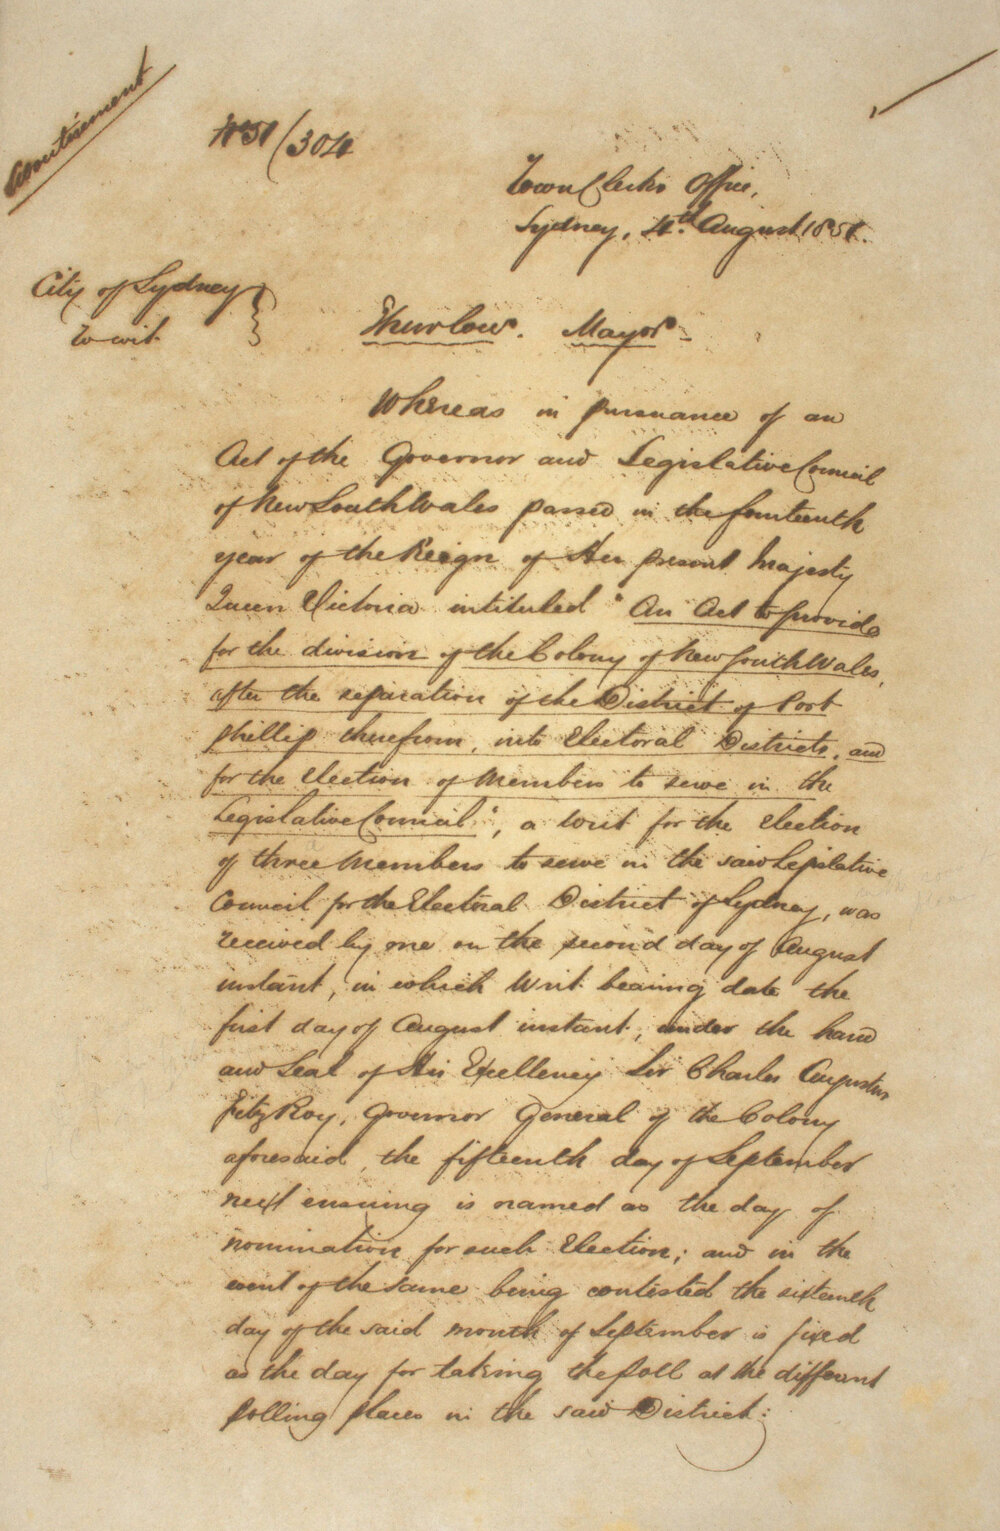 Advertisement
No 51/304
Town Clerks Office,
Sydney, 4th. August 1851.
City of Sydney
to wit
Thurlow. Mayor
Whereas in pursuance of an
Act of the Governor and Legislative Council
of New South Wales passed in the fourteenth
year of the Reign of Her present Majesty
Queen Victoria intituled "An Act to provide
for the division of the Colony of New South Wales,
after the separation of the District of Port
Phillip therefrom, into Electoral Districts, and
for the Election of Members to serve in the
Legislative Council", a writ for the Election
of three Members to serve in the said Legislative
Council for the Electoral District of Sydney, was
received by me on the second day of August
instant, in which Writ bearing date the
first day of August instant, under the hand
and Seal of His Excellency Sir Charles Augustus
FitzRoy, Governor General of the Colony
aforesaid, the fifteenth day of September
next ensuing is named as the day of
nomination for such Election; and in the
event of the same being contested the sixteenth
day of the said month of September is fixed
as the day for taking the poll at the different
polling places in the said District: